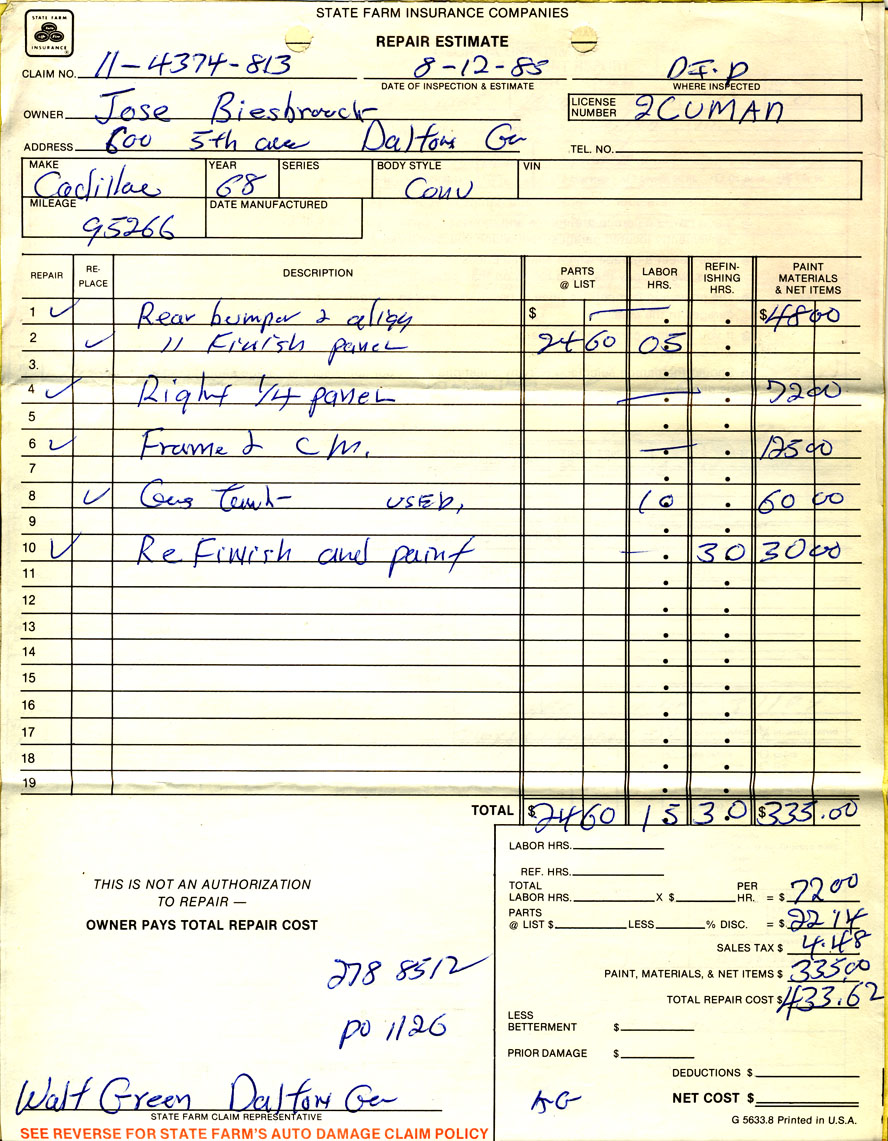 STATE FARM
INSURANCE
STATE FARM INSURANCE COMPANIES
REPAIR ESTIMATE
CLAIM NO. 11-4374-813 8-12-85
DATE OF INSPECTION & ESTIMATE WHERE INSPECTED
OWNER Jose LICENSE NUMBER 2CUMAN
ADDRESS 600 5th ave Dalton Ga TEL. NO.
MAKE YEAR SERIES BODY STYLE VIN
Cadillac 68 Conv
MILEAGE DATE MANUFACTURED
95266
REPAIR RE-PLACE DESCRIPTION PARTS @ LIST LABOR HRS. REFIN-ISHING HRS. PAINT MATERIALS & NET ITEMS
1 ✓ Rear bumper & align $ — . . $48 00
2 ✓ " Finish panel 24 60 0.5 .
3. . .
4 ✓ Right 1/4 panel — . . 72 00
5 . .
6 ✓ Frame & C M. — . . 125 00
7 . .
8 ✓ Gas tank USED, 1.0 . 60 00
9 . .
10 ✓ ReFinish and paint — . 3.0 30 00
11 . .
12 . .
13 . .
14 . .
15 . .
16 . .
17 . .
18 . .
19 . .
TOTAL $24 60 1.5 3.0 $335.00
LABOR HRS.
REF. HRS.
TOTAL LABOR HRS. X $ PER HR. = $ 72 00
PARTS @ LIST $ LESS % DISC. = $ 22 14
SALES TAX $ 4.48
PAINT, MATERIALS, & NET ITEMS $ 335.00
TOTAL REPAIR COST $ 433.62
LESS BETTERMENT $
PRIOR DAMAGE $
DEDUCTIONS $
NET COST $
G 5633.8 Printed in U.S.A.
THIS IS NOT AN AUTHORIZATION
TO REPAIR —
OWNER PAYS TOTAL REPAIR COST
278 8512
PO 1126
Walt Green Dalton Ga
STATE FARM CLAIM REPRESENTATIVE
SEE REVERSE FOR STATE FARM'S AUTO DAMAGE CLAIM POLICY